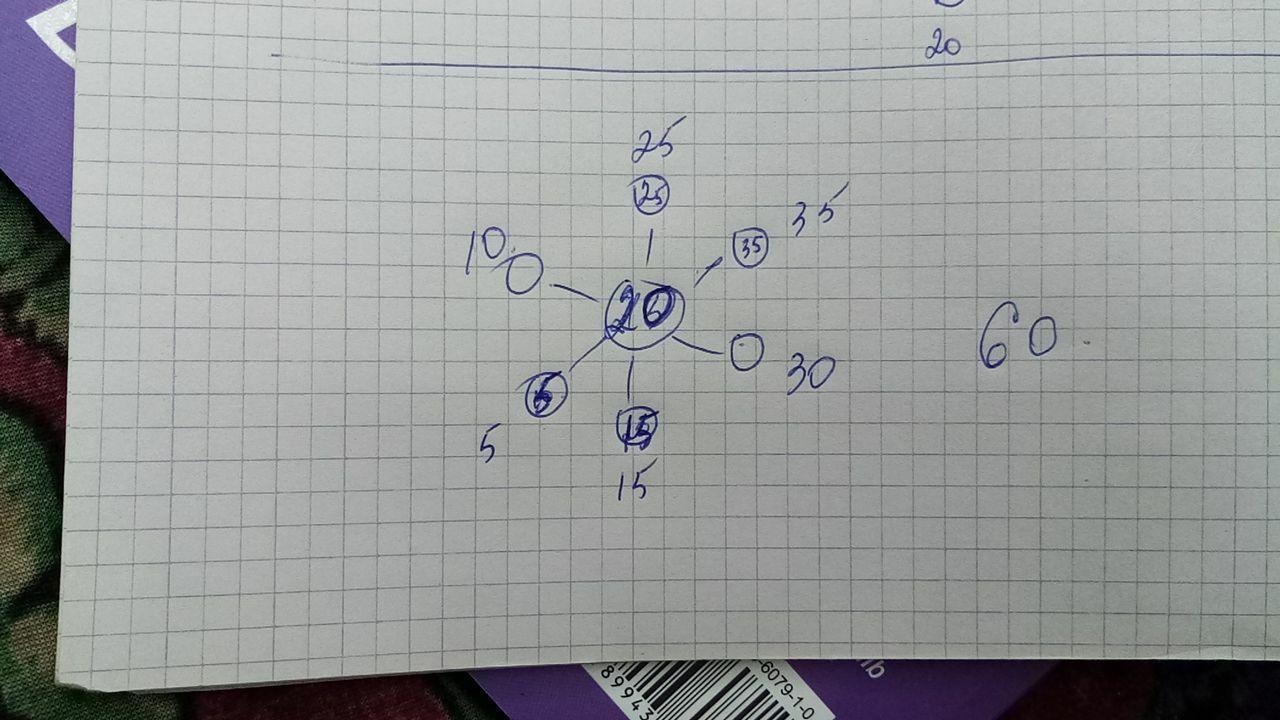 20
25
25
35
35
10
20
60
30
5
5
15
15
-6079-1-0
89943